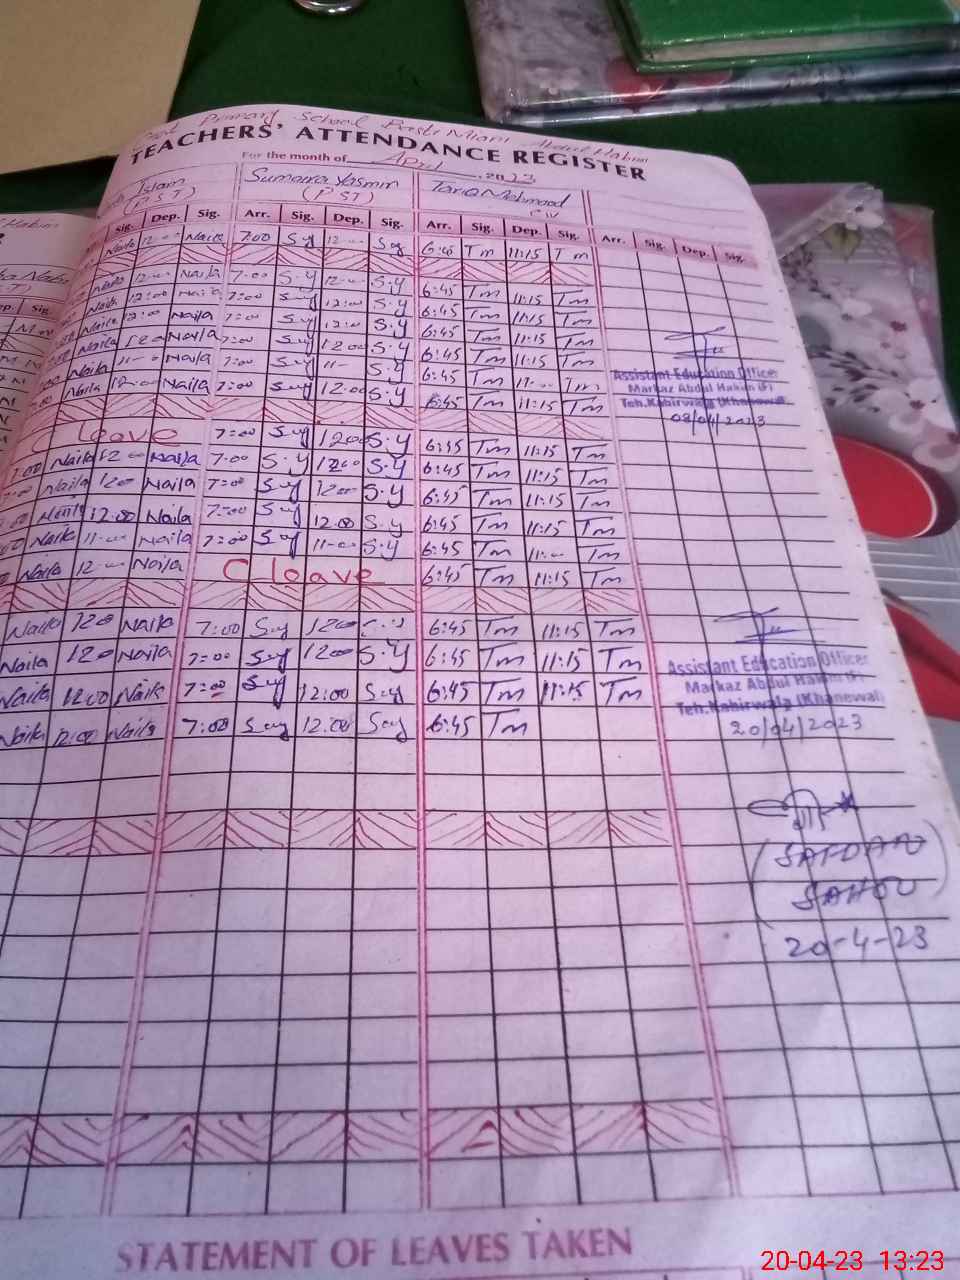 Primary School Basti Miani Abdul Hakim
TEACHERS' ATTENDANCE REGISTER
For the month of April 2023
Islam Sumaira Yasmin Tariq Mehmood
(PST) (PST)
Sig. Dep. Sig. Arr. Sig. Dep. Sig. Arr. Sig. Dep. Sig. Arr. Sig. Dep. Sig.
Naila 12:00 Naila 7:00 Sy 12:00 Sy 6:45 Tm 11:15 Tm
Naila 12:00 Naila 7:00 S.y 12:00 S.y 6:45 Tm 11:15 Tm
Naila 12:00 Naila 7:00 Sy 12:00 S.y 6:45 Tm 11:15 Tm
Naila 12:00 Naila 7:00 Sy 12:00 S.y 6:45 Tm 11:15 Tm
Naila 1200 Naila 7:00 Sy 1200 S.y 6:45 Tm 11:15 Tm
Naila 11-00 Naila 7:00 Sy 11- S.y 6:45 Tm 11:00 Tm
Naila 12:00 Naila 7:00 Sy 12:00 S.y 6:45 Tm 11:15 Tm
Assistant Education Officer
Markaz Abdul Hakim (F)
Teh. Kabirwala (Khanewal)
08/04/2023
C leave 7:00 Sy 1200 S.y 6:45 Tm 11:15 Tm
7:00 Naila 12:00 Naila 7:00 S.y 1200 S.y 6:45 Tm 11:15 Tm
7:00 Naila 1200 Naila 7:00 Sy 1200 S.y 6:45 Tm 11:15 Tm
Naila 12:00 Naila 7:00 Sy 12:00 S.y 6:45 Tm 11:15 Tm
Naila 11:00 Naila 7:00 Sy 11-00 S.y 6:45 Tm 11:00 Tm
Naila 12:00 Naila C leave 6:45 Tm 11:15 Tm
Naila 1200 Naila 7:00 Sy 1200 6:45 Tm 11:15 Tm
Naila 1200 Naila 7:00 Sy 1200 S.y 6:45 Tm 11:15 Tm
Naila 12:00 Naila 7:00 Sy 12:00 Sy 6:45 Tm 11:15 Tm
Naila 12:00 Naila 7:00 Sy 12:00 Sy 6:45 Tm
Assistant Education Officer
Markaz Abdul Hakim (F)
Teh. Kabirwala (Khanewal)
20/04/2023
(SAFDAR
SAHOO)
20-4-23
STATEMENT OF LEAVES TAKEN
20-04-23 13:23